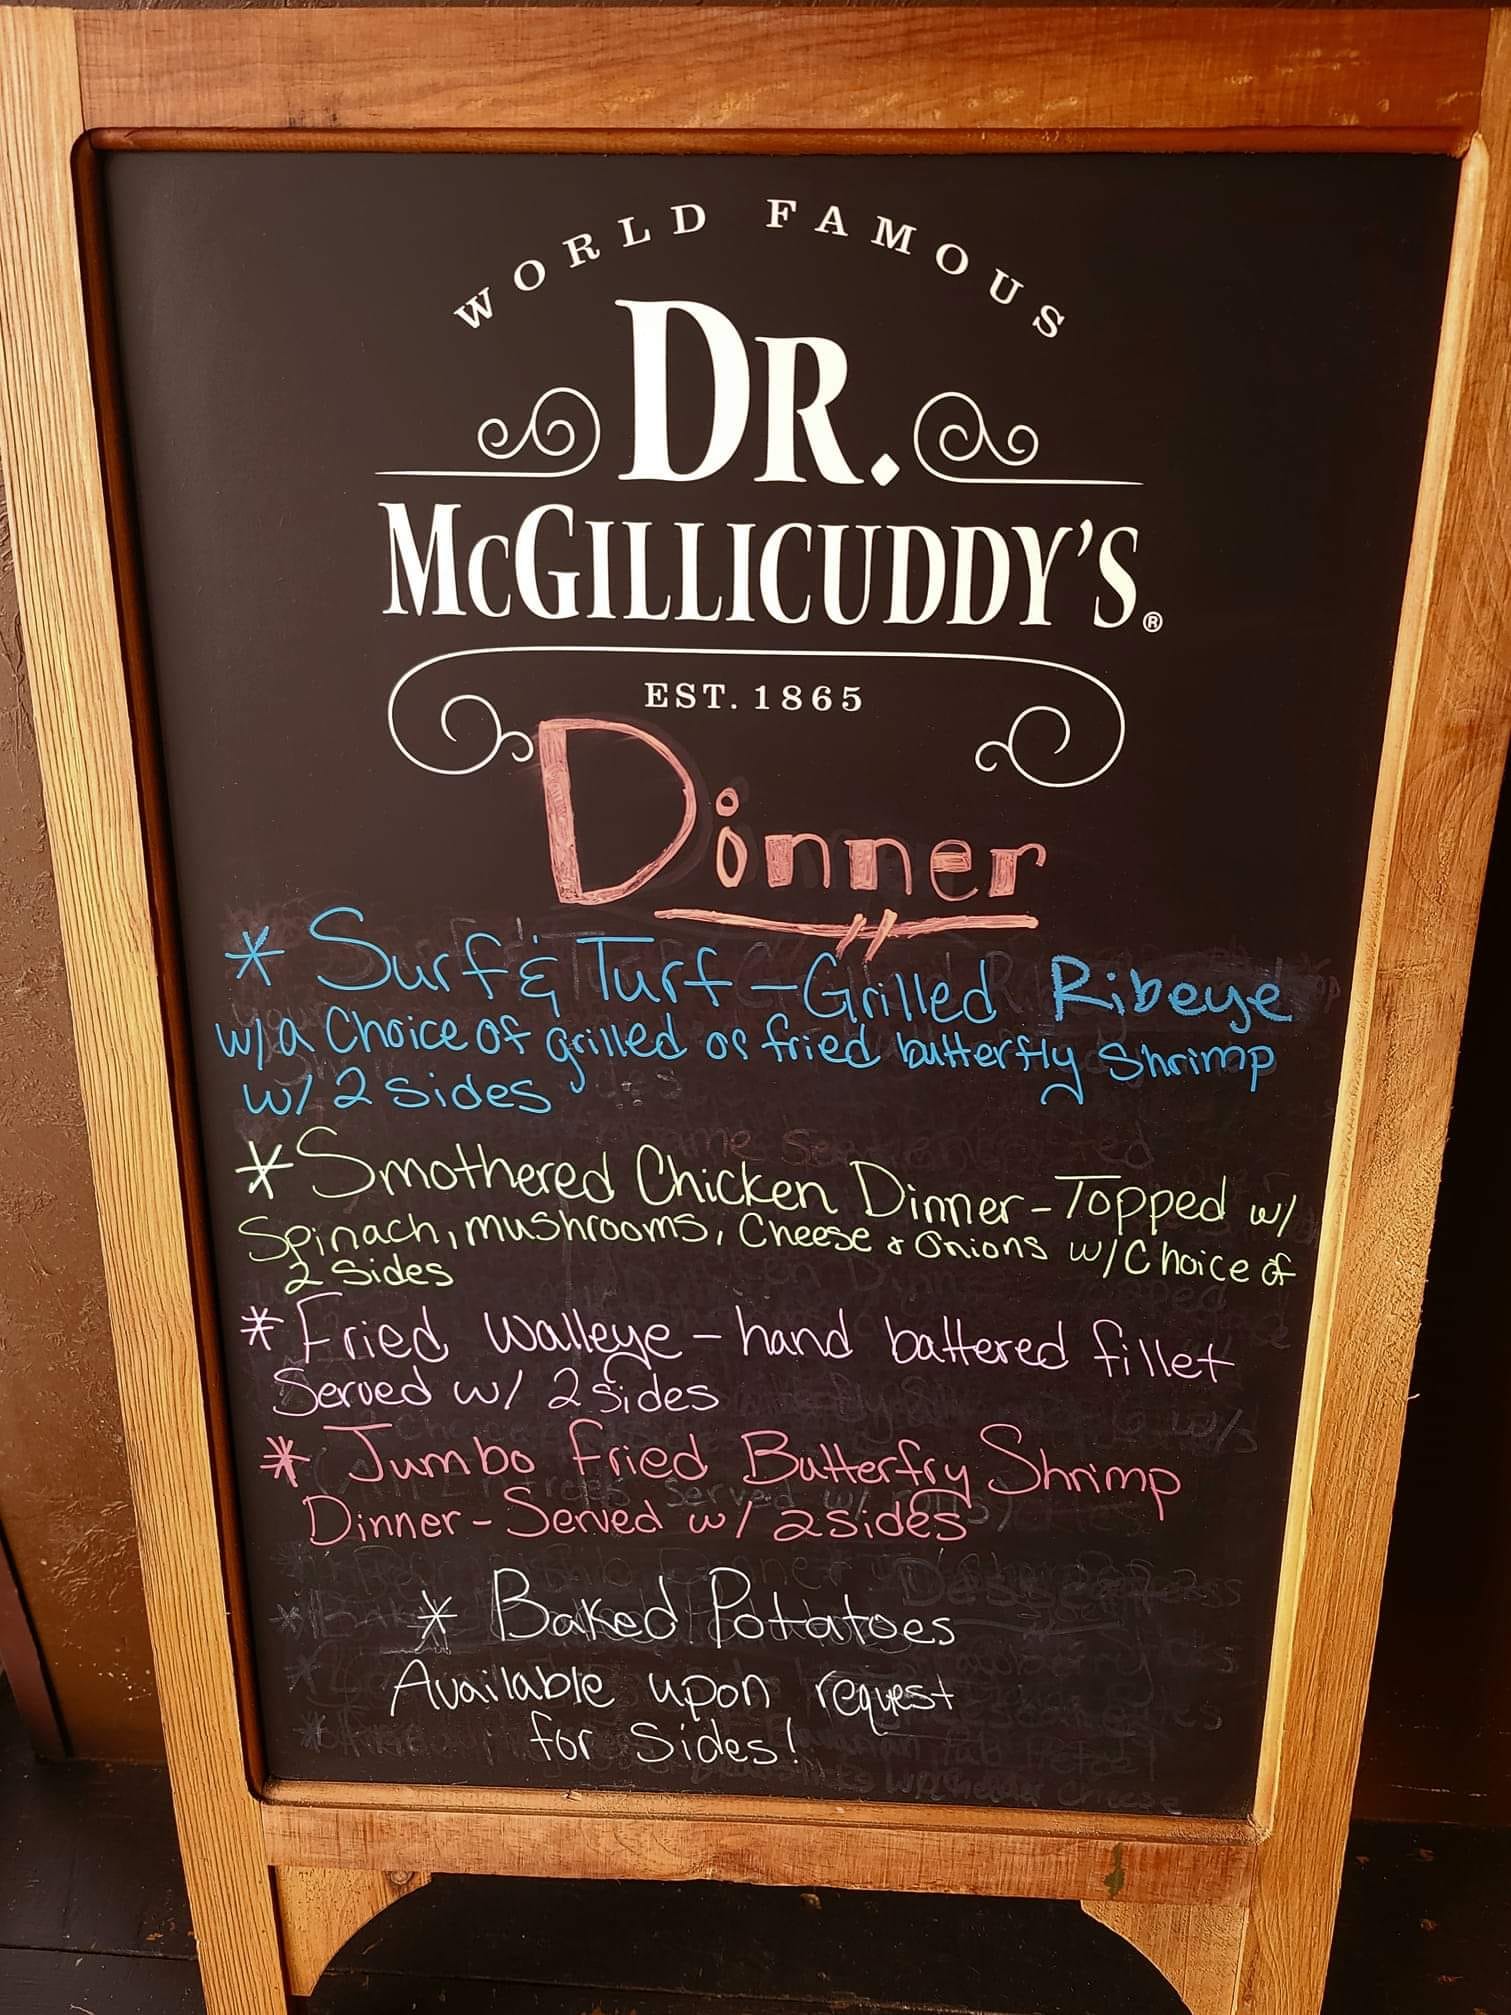 WORLD FAMOUS
DR.
McGILLICUDDY'S®
EST. 1865
Dinner
* Surf & Turf - Grilled Ribeye
w/a Choice of grilled or fried butterfly Shrimp
w/ 2 sides
* Smothered Chicken Dinner - Topped w/
Spinach, mushrooms, Cheese & Onions w/Choice of
2 Sides
* Fried Walleye - hand battered fillet
Served w/ 2 sides
* Jumbo Fried Butterfry Shrimp
Dinner - Served w/ 2 sides
* Baked Potatoes
Available upon request
for Sides!